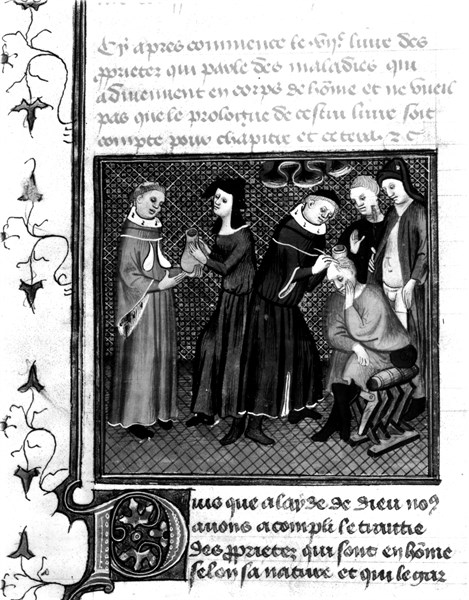 Cy apres commence le vije livre des
pprietez qui parle des maladies qui
adviennent en corps de hôme et ne vueil
pas que le prologue de cestui livre soit
compte pour chapitre et cetera. ⁊ c
Puis que a layde de dieu noꝰ
avons acompli le traittie
des pprietez qui sont en hôme
selon sa nature et qui le gar